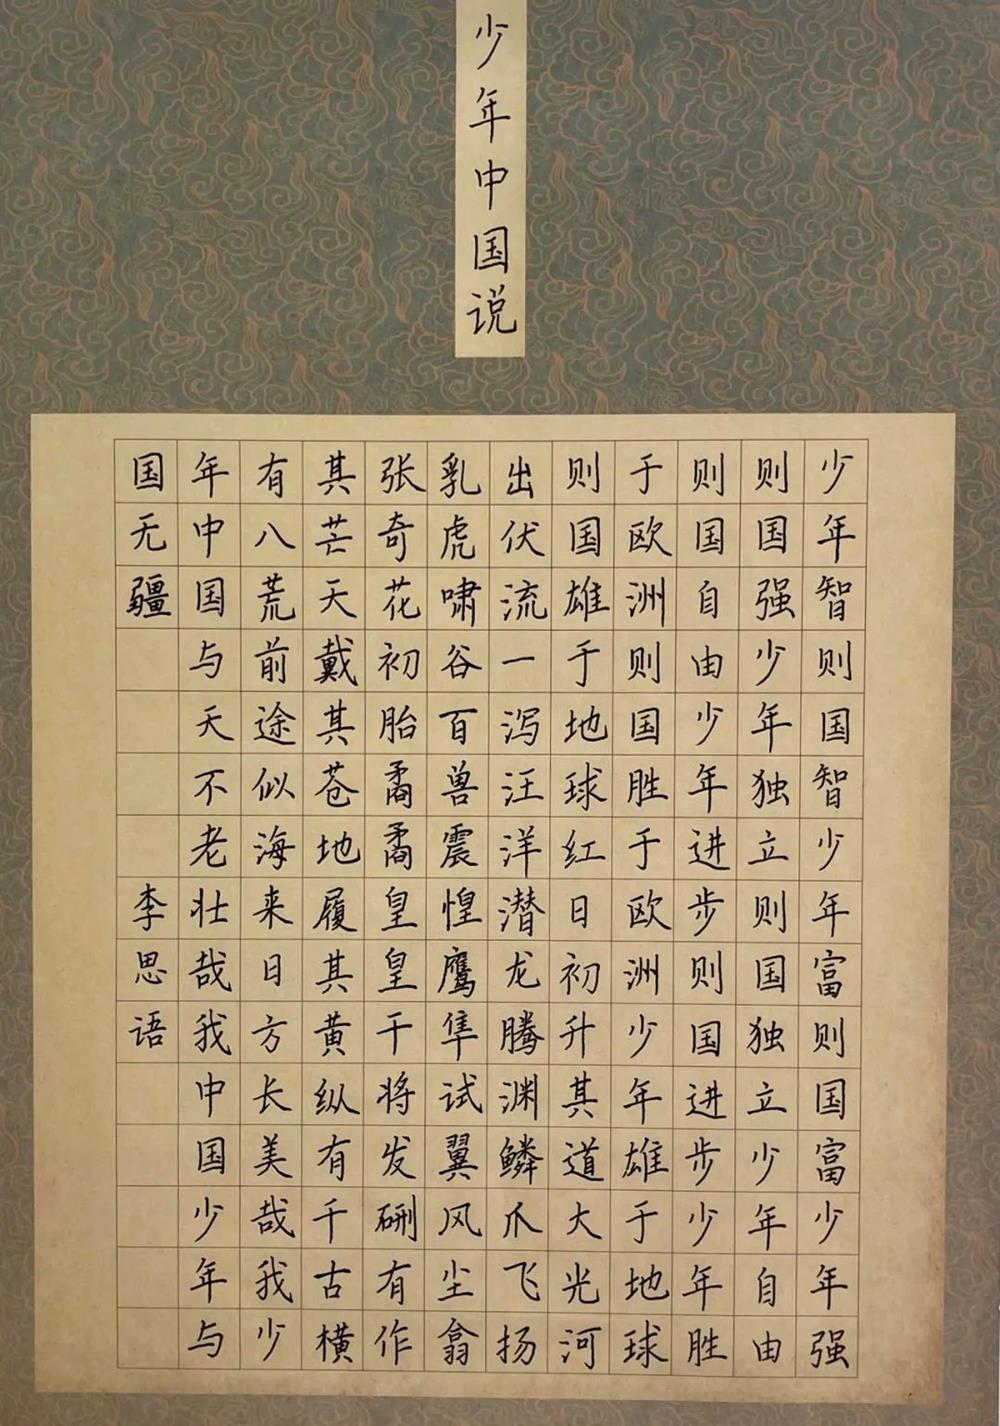 少年中国说
少年智则国智少年富则国富少年强
则国强少年独立则国独立少年自由
则国自由少年进步则国进步少年胜
于欧洲则国胜于欧洲少年雄于地球
则国雄于地球红日初升其道大光河
出伏流一泻汪洋潜龙腾渊鳞爪飞扬
乳虎啸谷百兽震惶鹰隼试翼风尘翕
张奇花初胎矞矞皇皇干将发硎有作
其芒天戴其苍地履其黄纵有千古横
有八荒前途似海来日方长美哉我少
年中国与天不老壮哉我中国少年与
国无疆
李思语